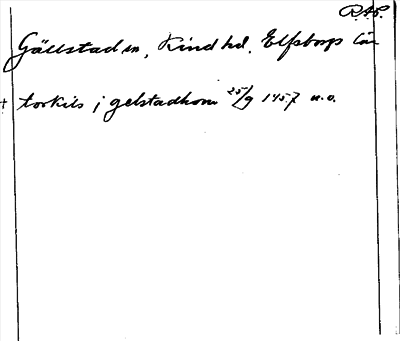 R.A.P.
Gällstad sn, Kind hd, Elfsborgs län
+ torkils j gelstadhom 25/9 1457 n.o.